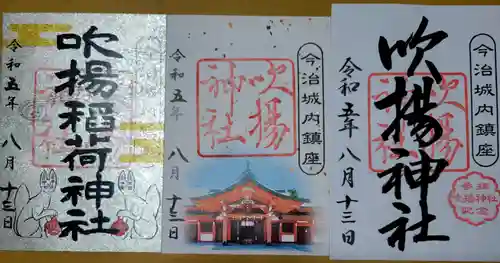 吹揚稲荷神社
令和五年 八月十三日
今治城内鎮座
吹揚神社
令和五年 八月十三日
今治城内鎮座
吹揚神社
吹揚神社
令和五年 八月十三日
参拝
吹揚神社
記念